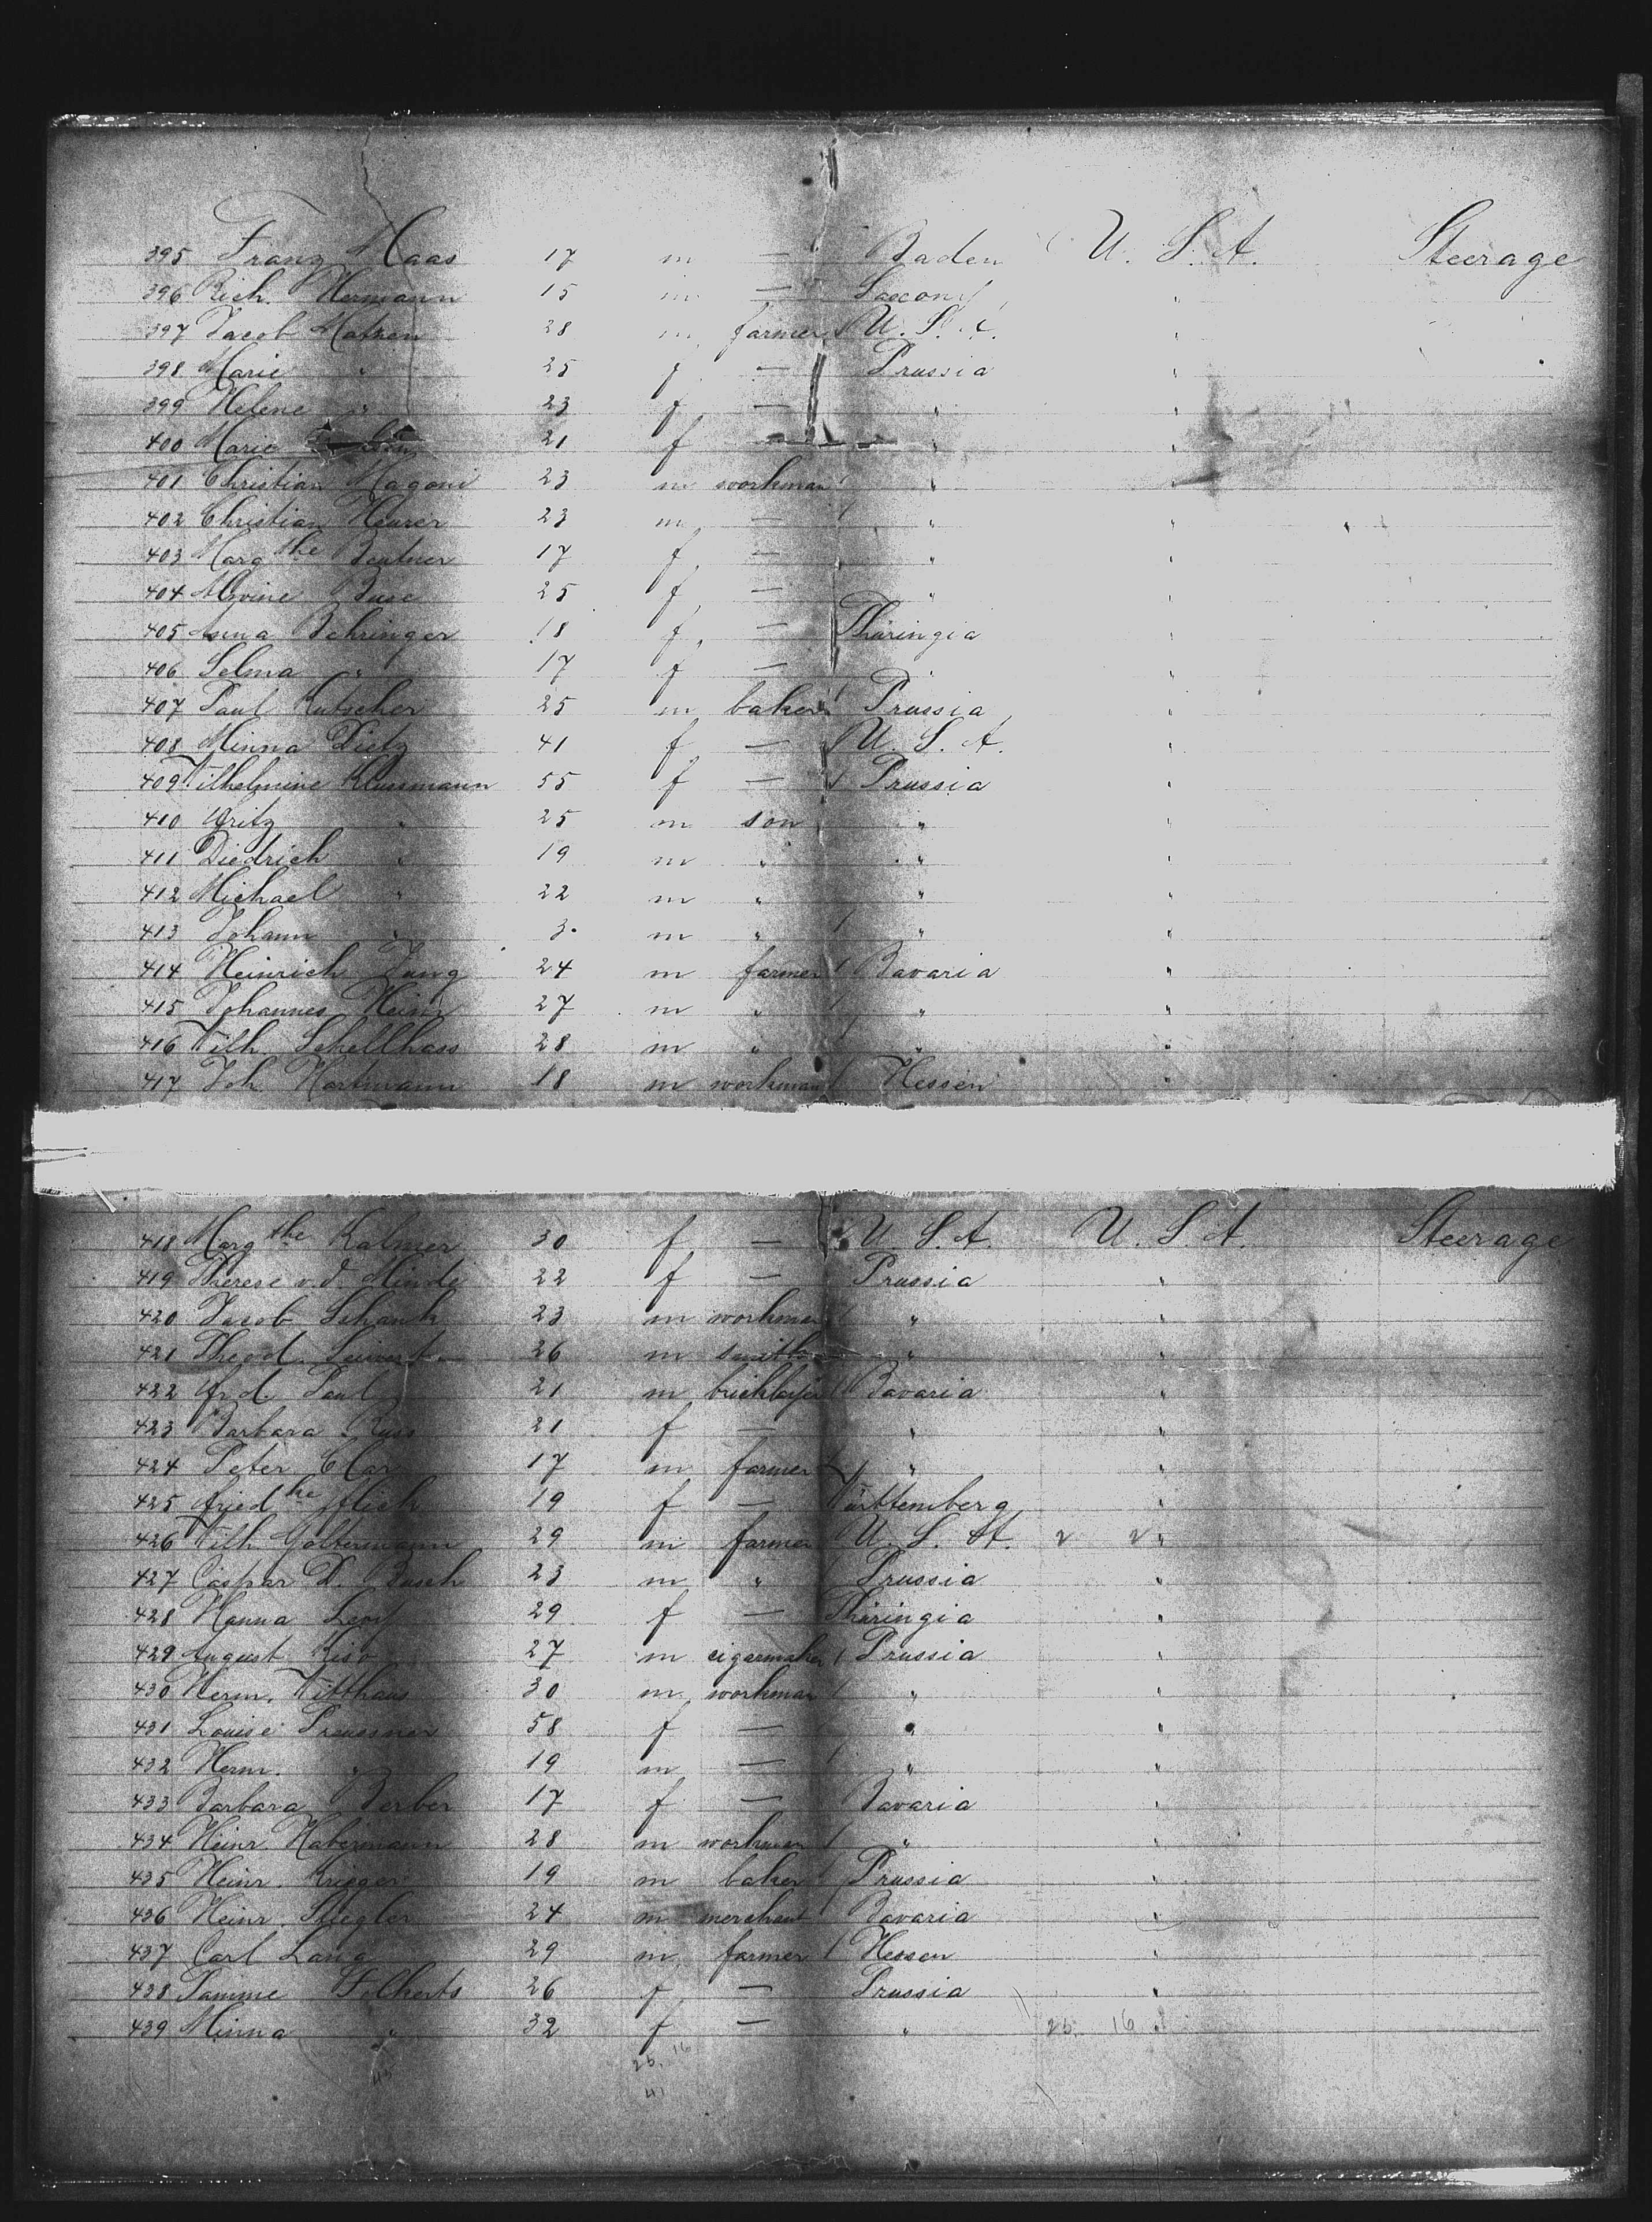 395 Franz Haas 17 m — Baden U. S. A. Steerage
396 Rich. Hermann 15 m — Saxony "
397 Jacob Matzen 28 m farmer U. S. A. "
398 Marie " 25 f — Prussia "
399 Helene " 23 f — " "
400 Marie 21 f " "
401 Christian Magoni 23 m workman " "
402 Christian Heurer 23 m — " "
403 Marg the 17 f — " "
404 Alwine Buse 25 f — " "
405 Anna Behringer 18 f — Thüringia "
406 Selma " 17 f — " "
407 Paul Kutscher 25 m baker Prussia "
408 Minna Dietz 41 f — U. S. A. "
409 Wilhelmine Klussmann 55 f — Prussia "
410 Fritz " 25 m son " "
411 Diedrich " 19 m " " "
412 Michael " 22 m " " "
413 Johann " 3. m " " "
414 Heinrich Zang 24 m farmer Bavaria "
415 Johannes Heim 27 m " " "
416 Wilh. Schellhass 28 m " " "
417 Joh. Hartmann 18 m workman Hessen "
418 Marg the Kalmer 30 f — U. S. A. U. S. A. Steerage
419 Therese v. d. Minde 22 f — Prussia "
420 Jacob Schanck 23 m workman " "
421 Theod. 26 m smith " "
422 Frd. Paul 21 m bricklayer Bavaria "
423 Barbara Russ 21 f — " "
424 Peter Clar 17 m farmer " "
425 Fried he Flich 19 f — Württemberg "
426 Wilh. Goltermann 29 m farmer U. S. A. "
427 Caspar D. Busch 23 m " Prussia "
428 Hanna Levy 29 f — Thüringia "
429 August Kiso 27 m cigarmaker Prussia "
430 Herm. Witthaus 30 m workman " "
431 Louise Preussner 58 f — " "
432 Herm. " 19 m — " "
433 Barbara Berber 17 f — Bavaria "
434 Heinr. Habermann 28 m workman " "
435 Heinr. Krieger 19 m baker Prussia "
436 Heinr. Stiegler 24 m merchant Bavaria "
437 Carl Lang 29 m farmer Hessen "
438 Tamme Folkerts 26 f — Prussia "
439 Minna " 32 f — " 25. 16 "
25. 16
41